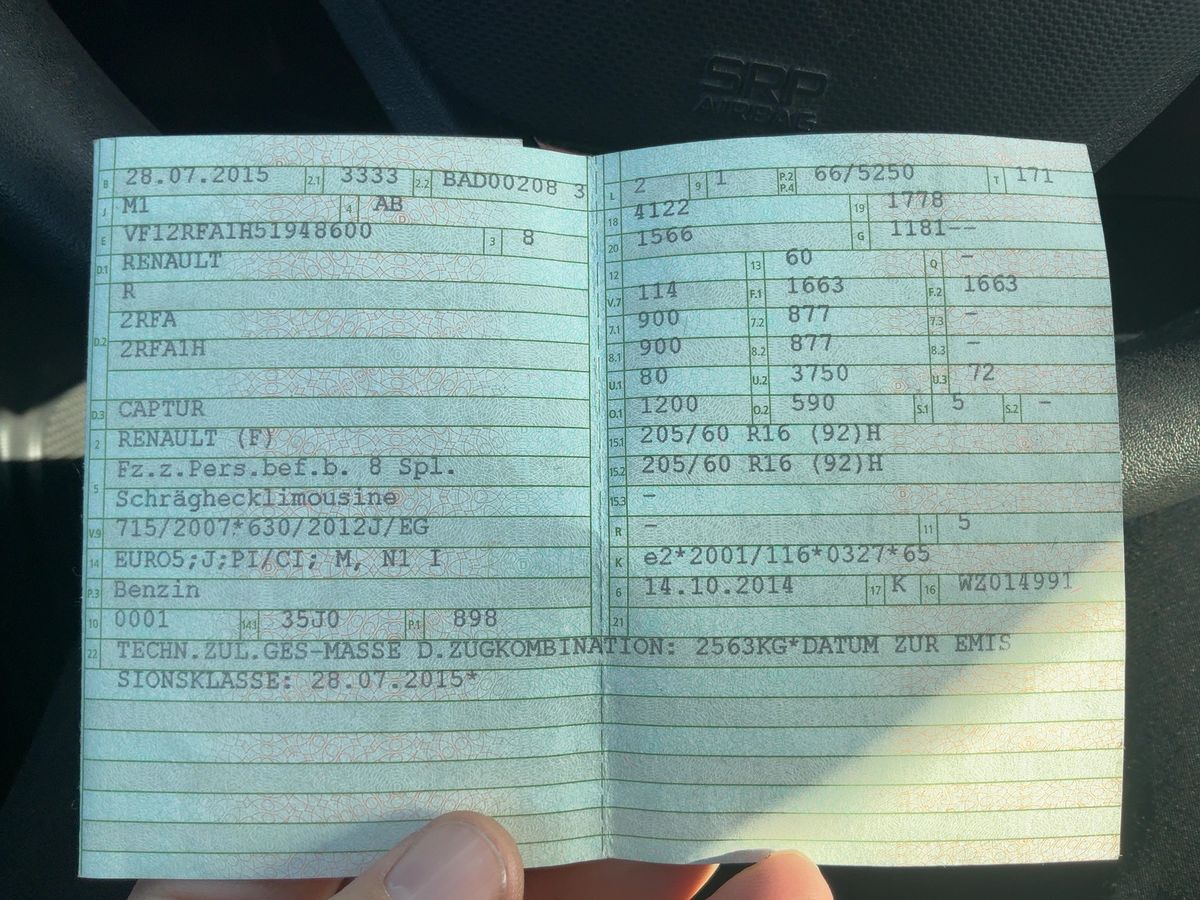 SRP
AIRBAG
B 28.07.2015 2.1 3333 2.2 BAD00208 3
J M1 4 AB
E VF12RFA1H51948600 3 8
D.1 RENAULT
R
2RFA
D.2 2RFA1H
D.3 CAPTUR
2 RENAULT (F)
Fz.z.Pers.bef.b. 8 Spl.
5 Schräghecklimousine
V.9 715/2007*630/2012J/EG
14 EURO5;J;PI/CI; M, N1 I
P.3 Benzin
10 0001 14.1 35J0 P.1 898
L 2 9 1 P.2 P.4 66/5250 T 171
18 4122 19 1778
20 1566 G 1181--
12 13 60 Q -
V.7 114 F.1 1663 F.2 1663
7.1 900 7.2 877 7.3 -
8.1 900 8.2 877 8.3 -
U.1 80 U.2 3750 U.3 72
O.1 1200 O.2 590 S.1 5 S.2 -
15.1 205/60 R16 (92)H
15.2 205/60 R16 (92)H
15.3 -
R - 11 5
K e2*2001/116*0327*65
6 14.10.2014 17 K 16 WZ014991
21
22 TECHN.ZUL.GES-MASSE D.ZUGKOMBINATION: 2563KG*DATUM ZUR EMIS
SIONSKLASSE: 28.07.2015*